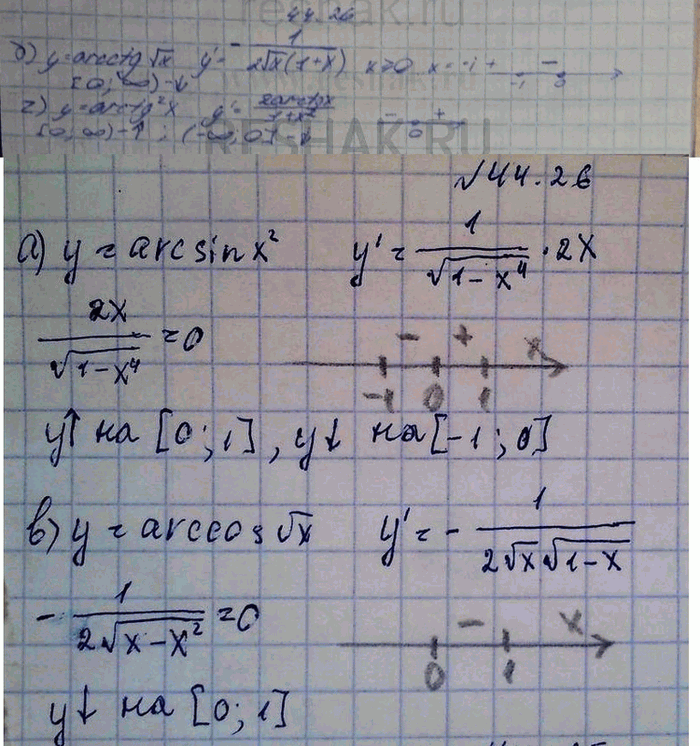 44.26
б) y=arcctg √x y' = - 1/(2√x(1+x)) x>0 x=-1 + -
-1 0
[0; ∞) - ↓
г) y=arctg²x y' = 2arctgx/(1+x²) - +
0
[0; ∞) - ↑ ; (-∞; 0] - ↓
RESHAK.RU
№44.26
а) y = arcsin x² y' = 1/√(1-x⁴) · 2x
2x/√(1-x⁴) = 0 - + x
-1 0 1
y↑ на [0; 1], y↓ на [-1; 0]
в) y = arccos √x y' = - 1/(2√x√(1-x))
- 1/(2√(x-x²)) = 0 - x
0 1
y↓ на [0; 1]